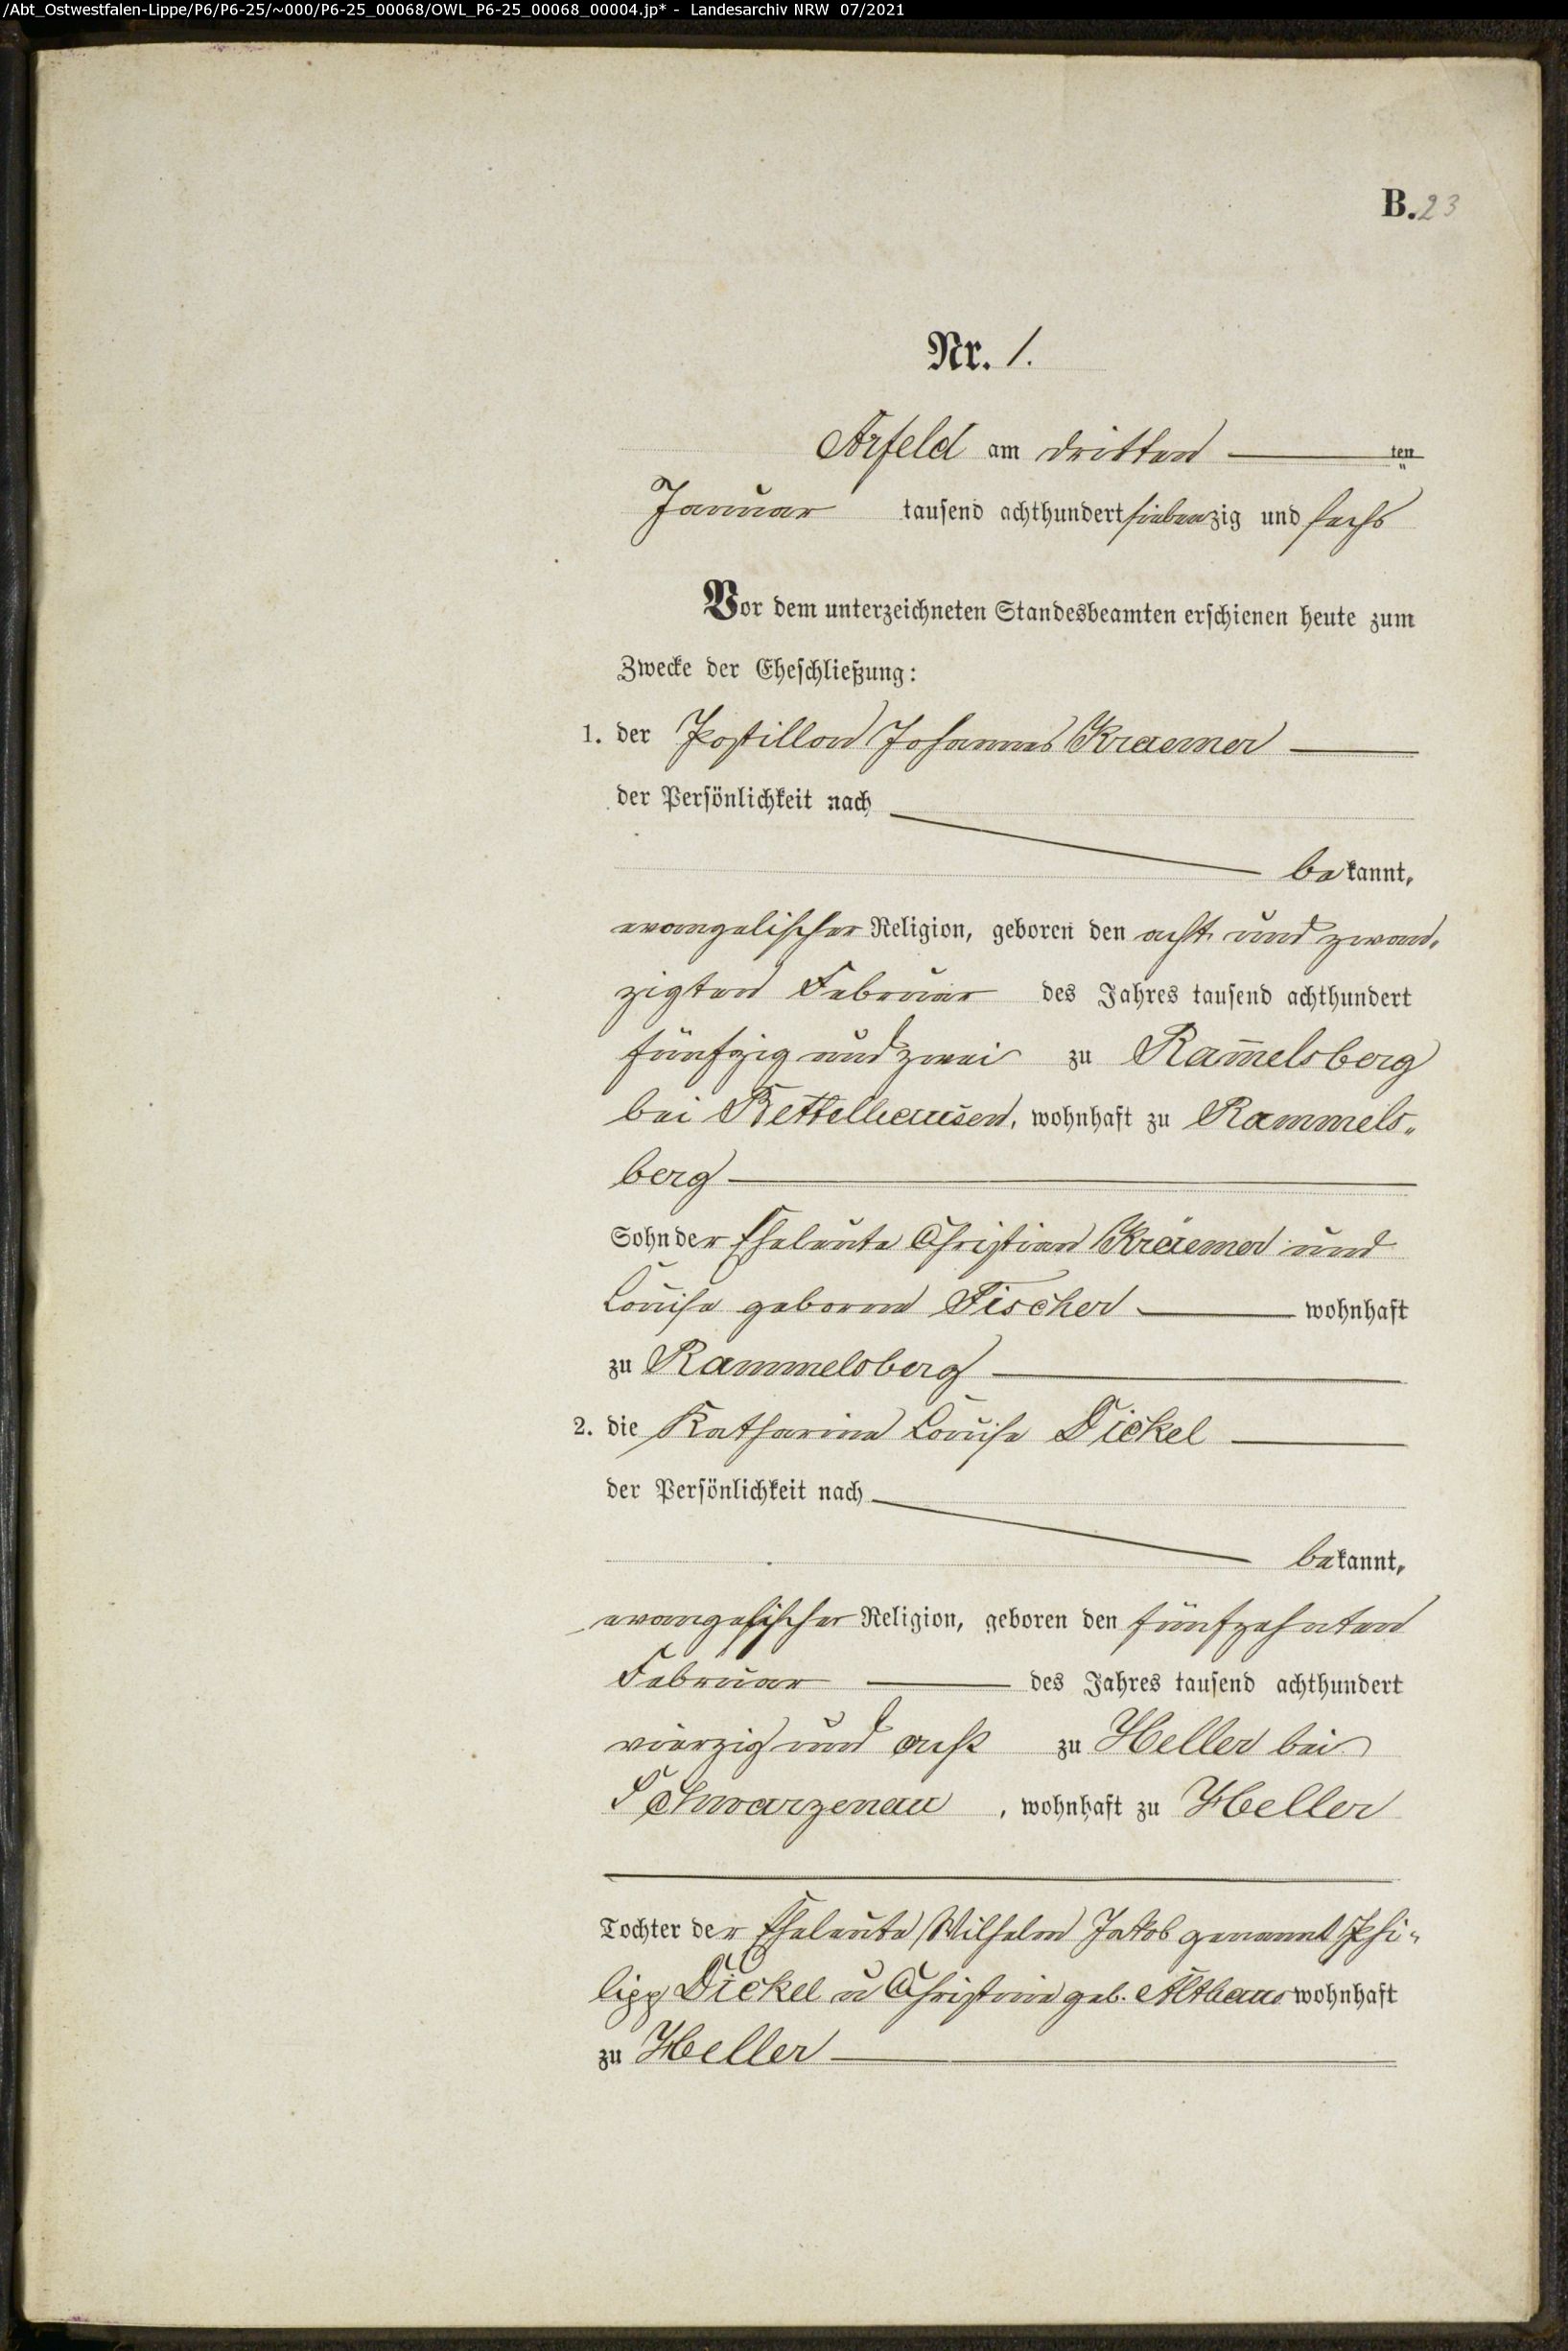 /Abt_Ostwestfalen-Lippe/P6/P6-25/~000/P6-25_00068/OWL_P6-25_00068_00004.jp* - Landesarchiv NRW 07/2021
B. 23
Nr. 1.
Arfeld am dritten ten
Januar tausend achthundert siebenzig und sechs
Vor dem unterzeichneten Standesbeamten erschienen heute zum
Zwecke der Eheschließung:
1. der Postillon Johannes Kraemer
der Persönlichkeit nach
bekannt,
evangelischer Religion, geboren den acht und zwan-
zigten Februar des Jahres tausend achthundert
fünfzig und zwei zu Ram̅elsberg
bei Bettelhausen, wohnhaft zu Rammels-
berg
Sohn der Eheleute Christian Kraemer und
Louise geboren Fischer wohnhaft
zu Rammelsberg
2. die Katharine Louise Dickel
der Persönlichkeit nach
bekannt,
evangelischer Religion, geboren den fünfzehnten
Februar des Jahres tausend achthundert
vierzig und acht zu Heller bei
Schwarzenau, wohnhaft zu Heller
Tochter der Eheleute Wilhelm Jakob genannt Phi-
lipp Dickel u Christine geb. Althaus wohnhaft
zu Heller